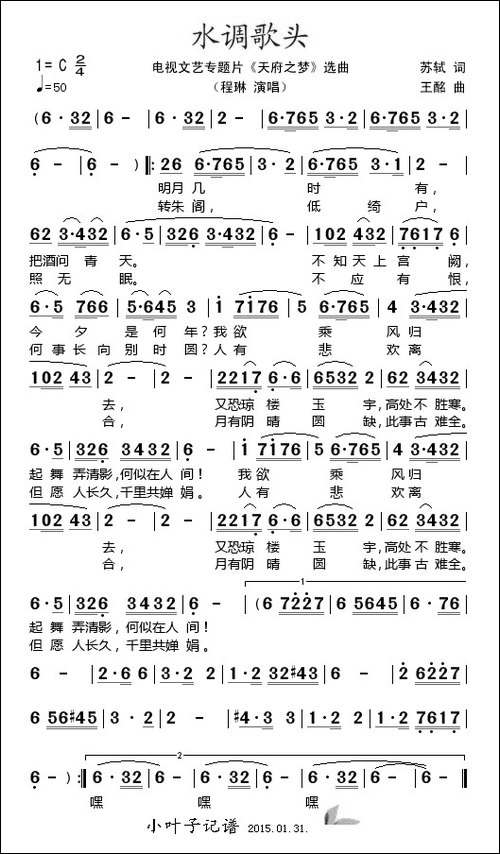 水调歌头
1=C 2/4 电视文艺专题片《天府之梦》选曲 苏轼 词
♩=50 (程琳 演唱) 王酩 曲
(6·32 | 6 - | 6·32 | 6·32 | 6·765 3·2 | 6·765 3·2 |
6 - | 6 - ) ‖: 26 6·765 | 3·2 | 6·765 3·1 | 2 - |
明月 几 时 有,
转朱 阁, 低 绮 户,
62 3·432 | 6·5 | 326 3·432 | 6 - | 102 432 | 7617 6 |
把酒问 青 天。 不 知 天 上 宫 阙,
照 无 眠。 不 应 有 恨,
6·5 766 | 5·645 3 | i 7i76 | 5 6·765 | 4 3·432 |
今 夕 是 何 年?我 欲 乘 风归
何 事 长 向 别 时 圆?人 有 悲 欢 离
102 43 | 2 - | 2 - | 2217 6·6 | 6532 2 | 62 3432 |
去, 又恐琼 楼 玉 宇,高处 不 胜寒。
合, 月有阴 晴 圆 缺,此事 古 难全。
6·5 | 326 3432 | 6 - | i 7i76 | 5 6·765 | 4 3·432 |
起 舞 弄清影,何似在人 间! 我 欲 乘 风归
但 愿 人长久,千里共婵 娟。 人 有 悲 欢 离
102 43 | 2 - | 2 - | 2217 6·6 | 6532 2 | 62 3432 |
去, 又恐琼 楼 玉 宇,高处 不 胜寒。
合, 月有阴 晴 圆 缺,此事 古 难全。
1
6·5 | 326 3432 | 6 - | (6 7227 | 6 5645 | 6·76 |
起 舞 弄清影,何似在人 间!
但 愿 人长久,千里共婵 娟。
6 - | 2·6 6 | 3·2 3 | 1·2 32#43 | 6 - | 2 6227 |
6 56#45 | 3·2 | 2 - | #4·3 3 | 1·2 1 | 1·2 7617 |
2
6 - ) :‖ 6·32 | 6 - | 6·32 | 6·32 | 6 - | 6 - ‖
嘿 嘿 嘿
小叶子记谱 2015.01.31.